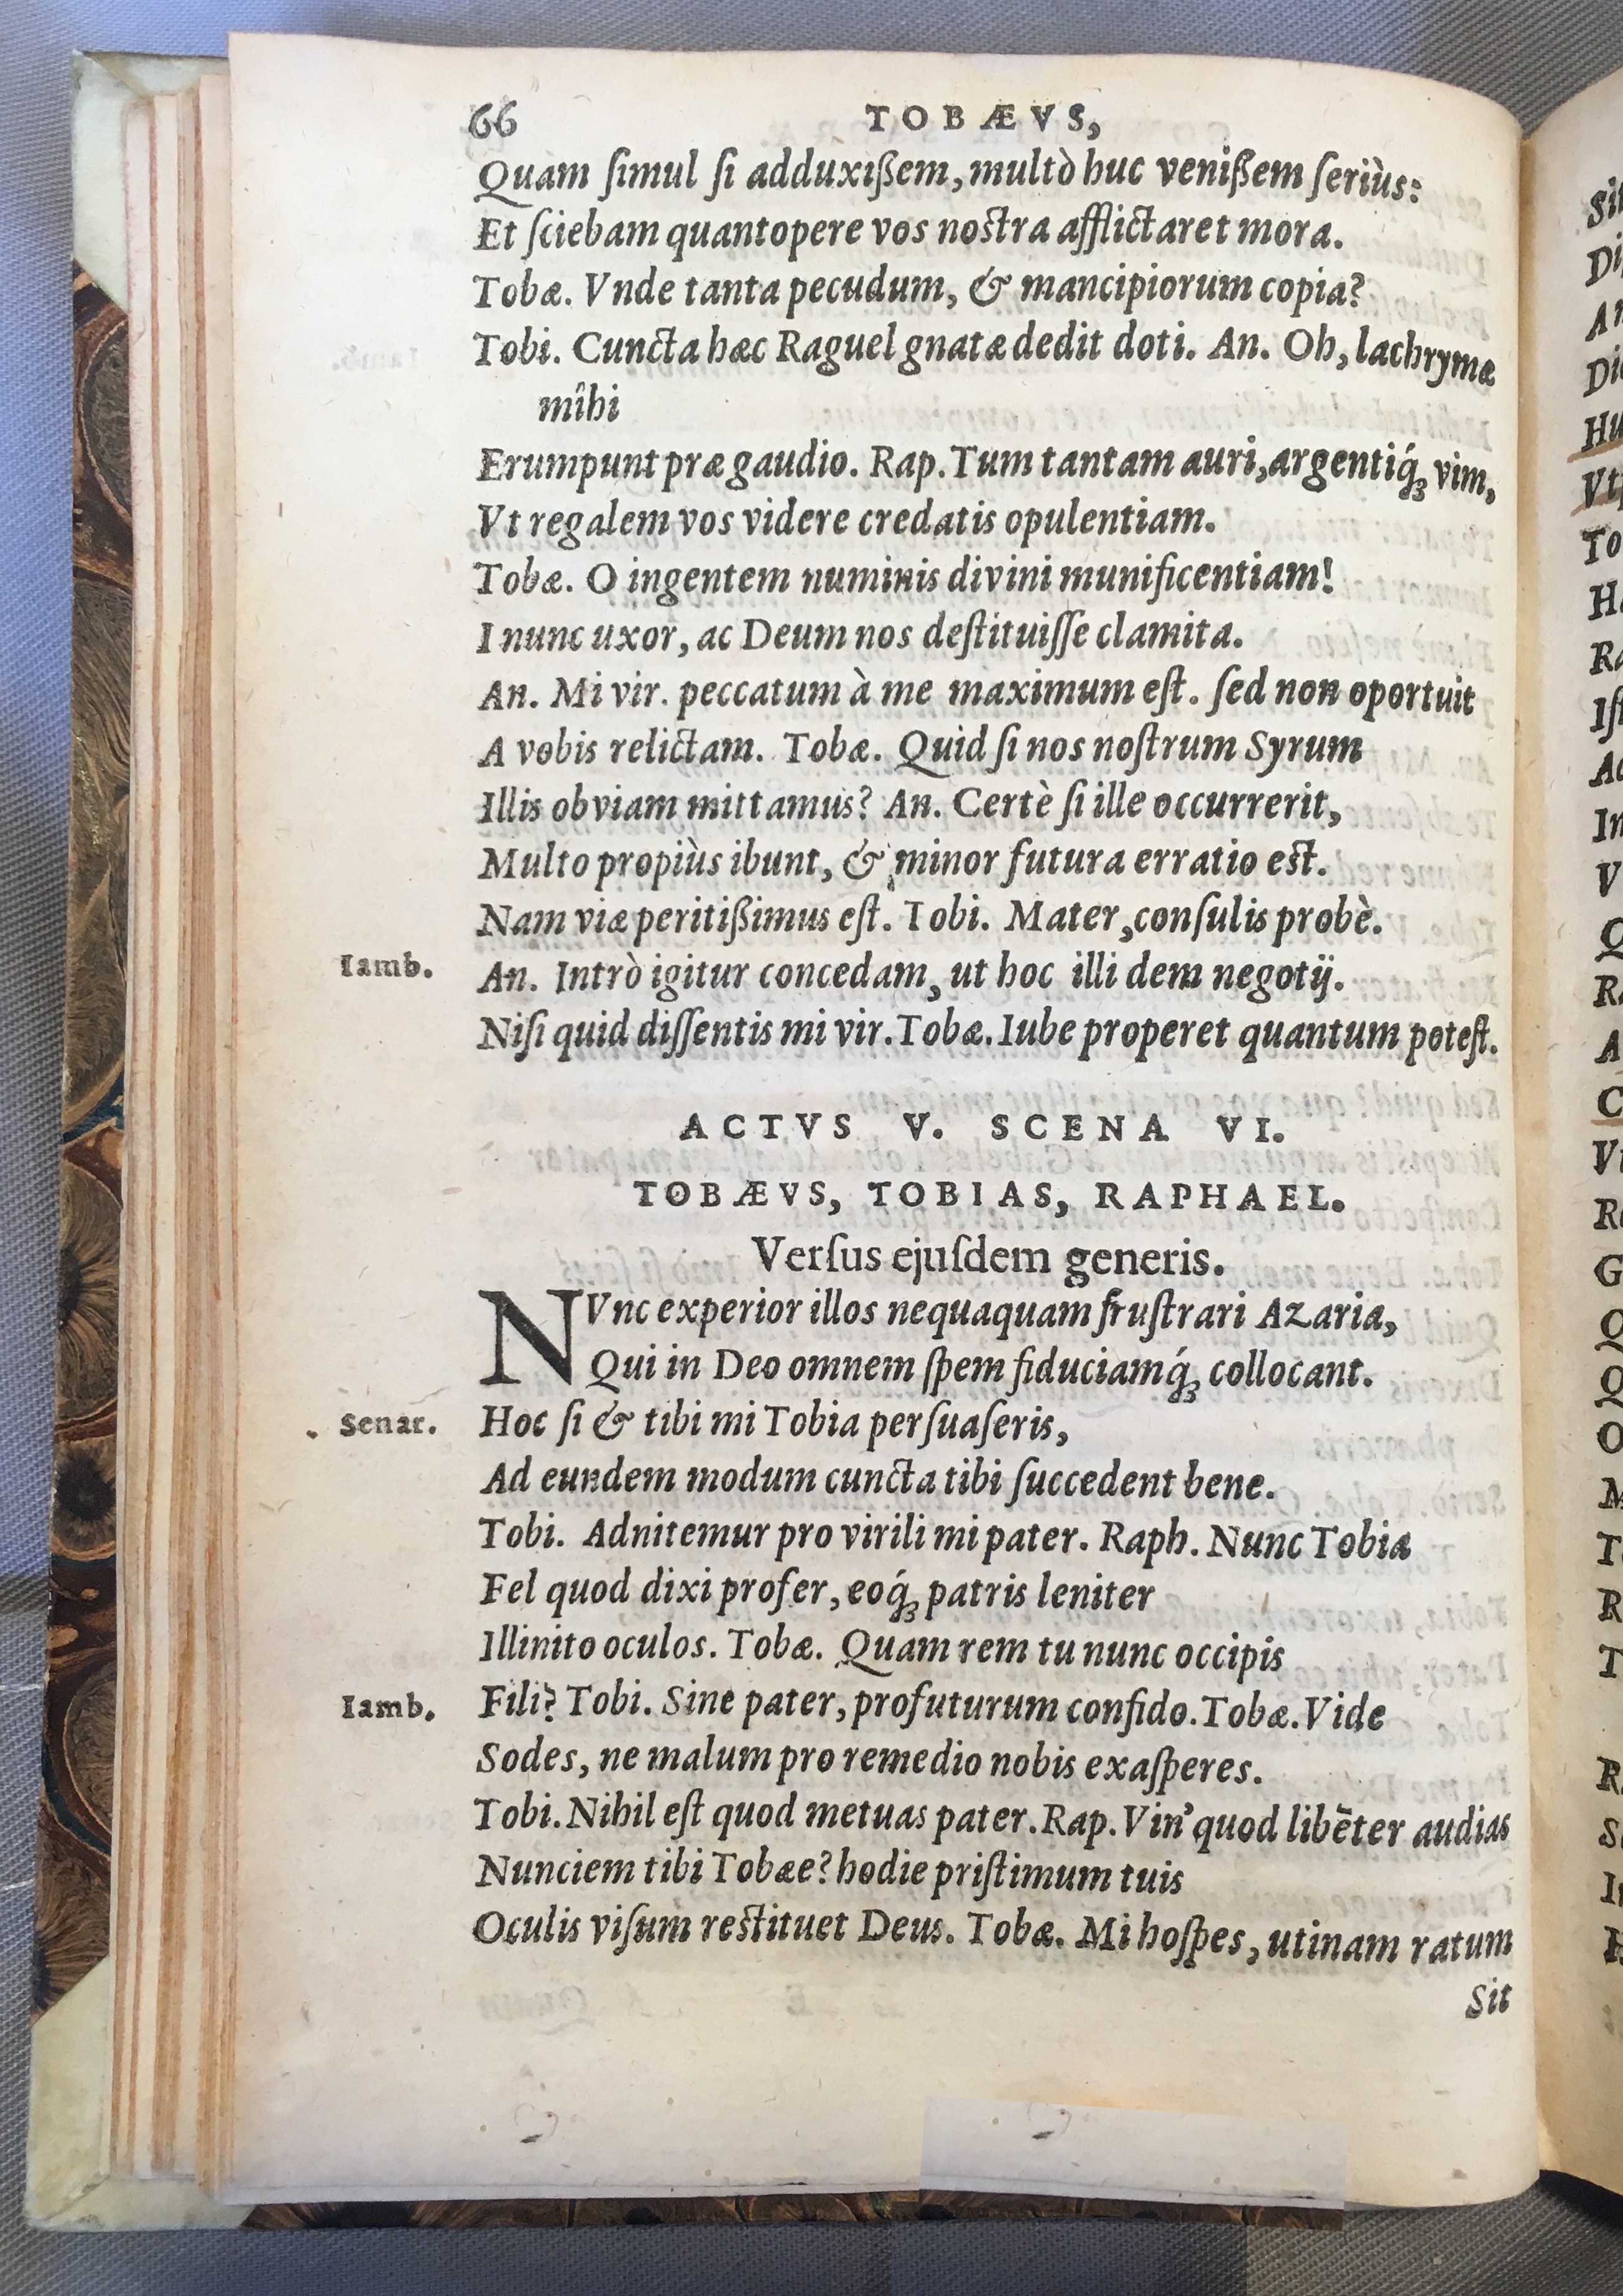 66 TOBÆVS,
Quam ſimul ſi adduxißem, multò huc venißem ſeriùs:
Et ſciebam quantopere vos noſtra afflictaret mora.
Tobæ. Vnde tanta pecudum, & mancipiorum copia?
Tobi. Cuncta hæc Raguel gnatæ dedit doti. An. Oh, lachrymæ
mîhi
Erumpunt præ gaudio. Rap. Tum tantam auri, argentiq́ꝫ vim,
Vt regalem vos videre credatis opulentiam.
Tobæ. O ingentem numinis divini munificentiam!
I nunc uxor, ac Deum nos deſtituiſſe clamita.
An. Mi vir. peccatum à me maximum eſt. ſed non oportuit
A vobis relictam. Tobæ. Quid ſi nos noſtrum Syrum
Illis obviam mittamus? An. Certè ſi ille occurrerit,
Multo propiùs ibunt, & minor futura erratio eſt.
Nam viæ peritißimus eſt. Tobi. Mater, conſulis probè.
Iamb. An. Intrò igitur concedam, ut hoc illi dem negotij.
Niſi quid diſſentis mi vir. Tobæ. Iube properet quantum poteſt.
ACTVS V. SCENA VI.
TOBÆVS, TOBIAS, RAPHAEL.
Verſus ejuſdem generis.
NVnc experior illos nequaquam fruſtrari Azaria,
Qui in Deo omnem ſpem fiduciamq́ꝫ collocant.
Senar. Hoc ſi & tibi mi Tobia perſuaſeris,
Ad eundem modum cuncta tibi ſuccedent bene.
Tobi. Adnitemur pro virili mi pater. Raph. Nunc Tobia
Fel quod dixi profer, eoq́ꝫ patris leniter
Illinito oculos. Tobæ. Quam rem tu nunc occipis
Iamb. Fili? Tobi. Sine pater, profuturum confido. Tobæ. Vide
Sodes, ne malum pro remedio nobis exaſperes.
Tobi. Nihil eſt quod metuas pater. Rap. Vin' quod libēter audias
Nunciem tibi Tobæe? hodie priſtimum tuis
Oculis viſum reſtituet Deus. Tobæ. Mi hoſpes, utinam ratum
Sit